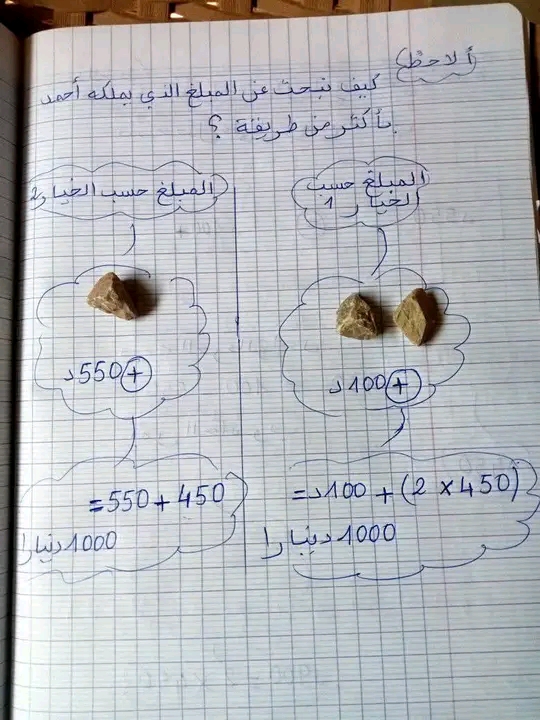 ألاحظ
كيف نبحث عن المبلغ الذي يملكه أحمد
بأكثر من طريقة ؟
المبلغ حسب
الخيار 1
المبلغ حسب الخيار 2
+ 100د
+ 550د
(450 × 2) + 100د=
1000 دينارا
450 + 550=
1000 دينارا